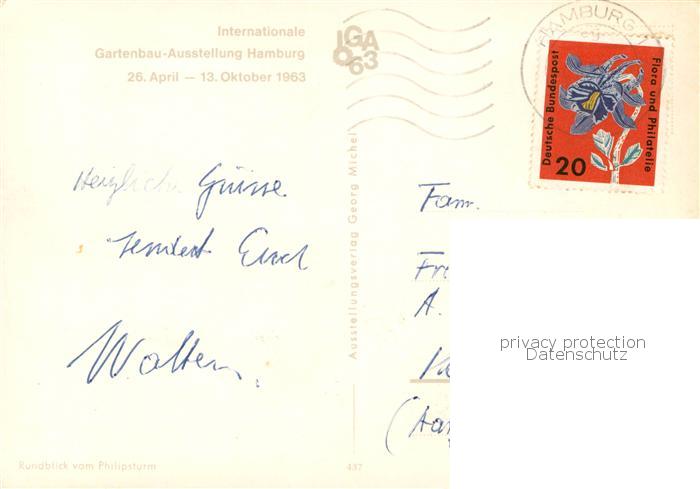 Internationale
Gartenbau-Ausstellung Hamburg
26. April — 13. Oktober 1963
IGA 63
HAMBURG
Deutsche Bundespost
Flora und Philatelie
20
Herzliche Grüsse
sendet Euch
Walter.
Ausstellungsverlag Georg Michel
Fam.
A.
privacy protection
Datenschutz
Rundblick vom Philipsturm
437